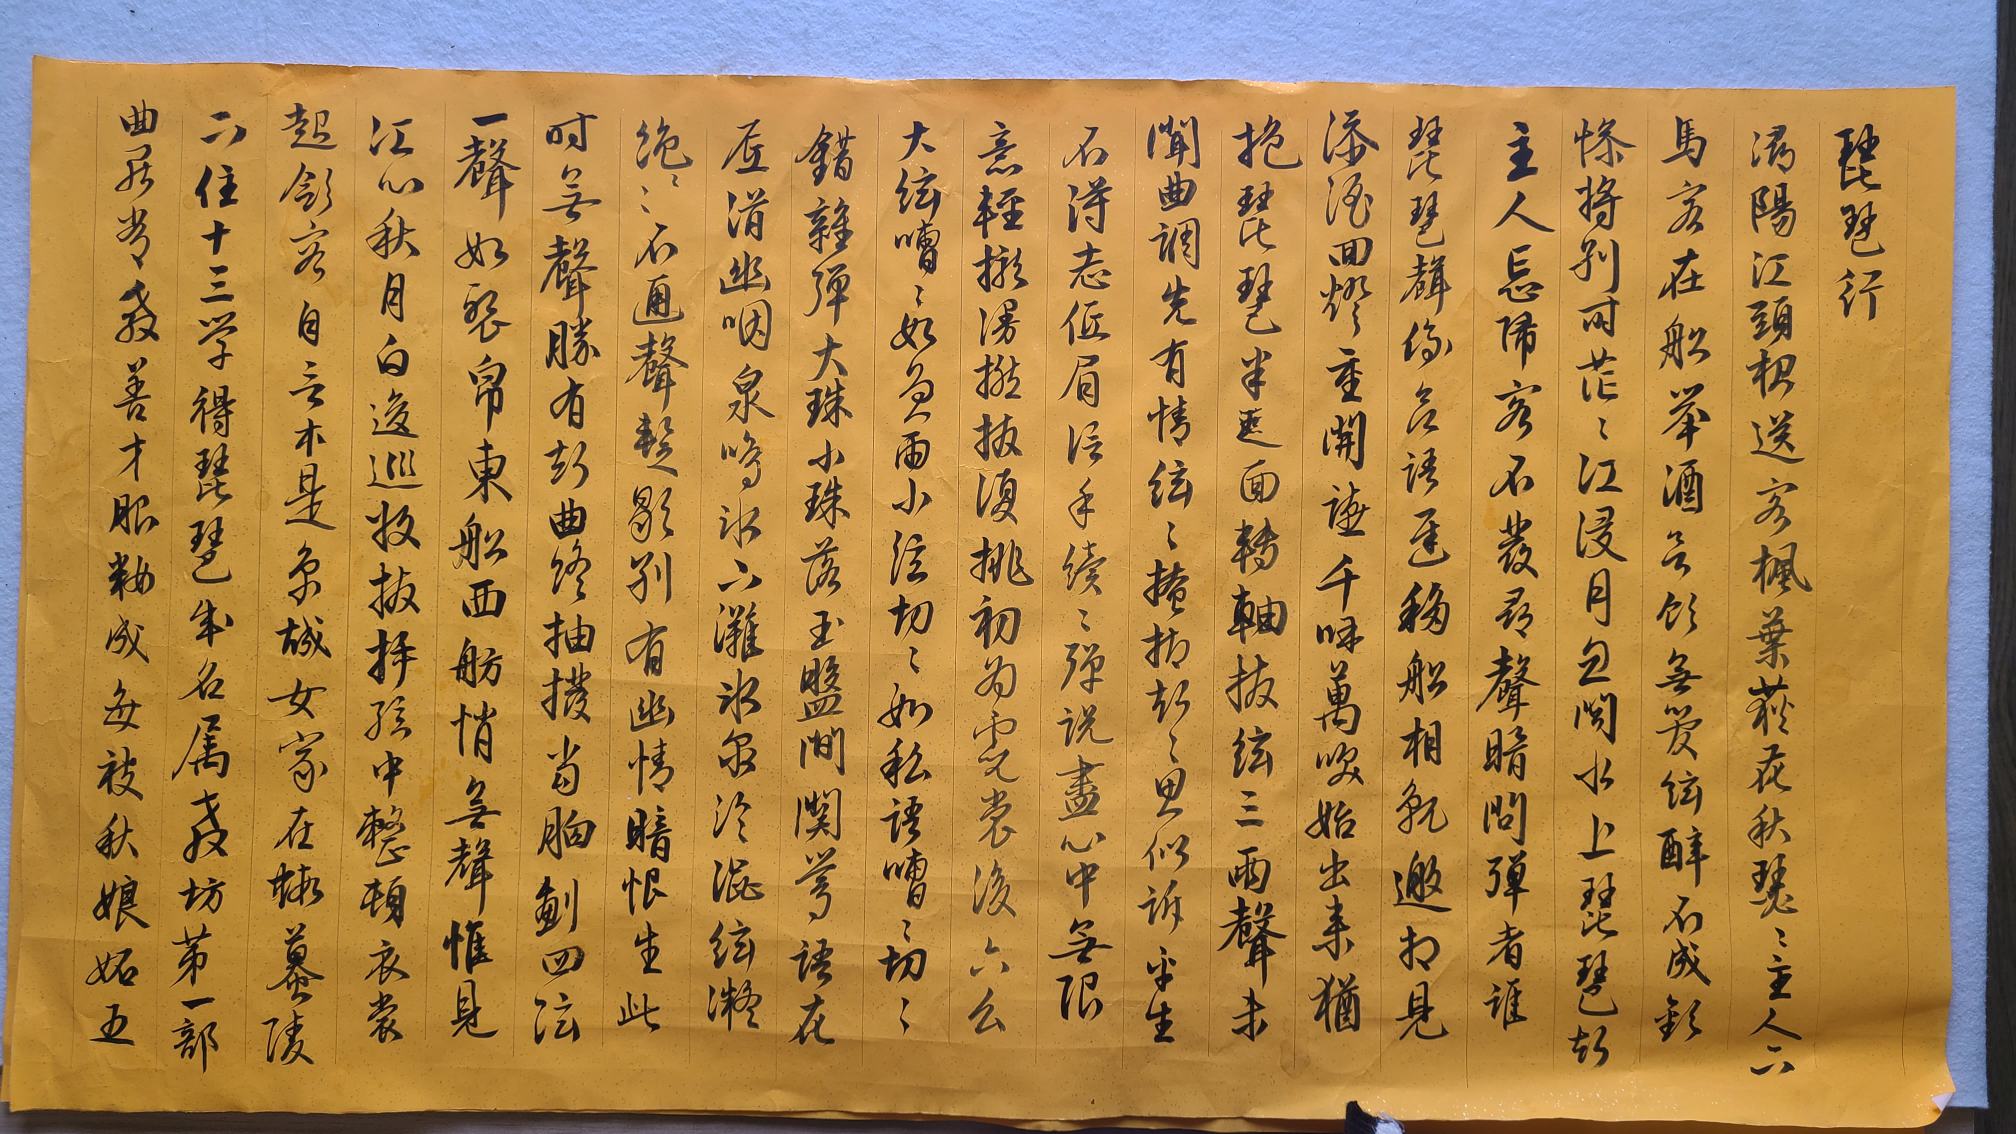 琵琶行
潯陽江頭夜送客楓葉荻花秋瑟〻主人下
馬客在船举酒欲飲無管絃醉不成歡
慘将别时茫〻江浸月忽闻水上琵琶聲
主人忘歸客不發尋聲暗問彈者誰
琵琶聲停欲語遲移船相就邀相見
添酒回燈重開讌千呼萬喚始出来猶
抱琵琶半遮面轉軸拔絃三兩聲未
聞曲調先有情絃〻掩抑聲〻思似訴平生
不得志低眉信手續〻彈说盡心中無限
意輕撚慢撚拔復挑初为霓裳後六么
大絃嘈〻如急雨小弦切〻如私語嘈〻切〻
錯雜彈大珠小珠落玉盤間関鶯語花
底滑幽咽泉鳴冰下灘冰泉冷澁絃凝
绝〻不通聲暫歇别有幽情暗恨生此
时無聲勝有聲曲終抽撥當胸劃四弦
一聲如裂帛東船西舫悄無聲惟見
江心秋月白沒巡收拔插弦中整頓衣裳
起斂容自言本是京城女家在蝦蟇陵
下住十三学得琵琶成名属教坊第一部
曲罢常教善才服妝成每被秋娘妬五